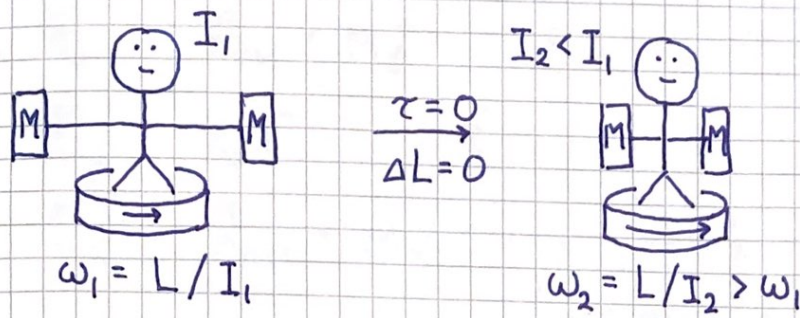 I₁
M M
ω₁ = L / I₁
τ = 0
ΔL = 0
I₂ < I₁
M M
ω₂ = L / I₂ > ω₁